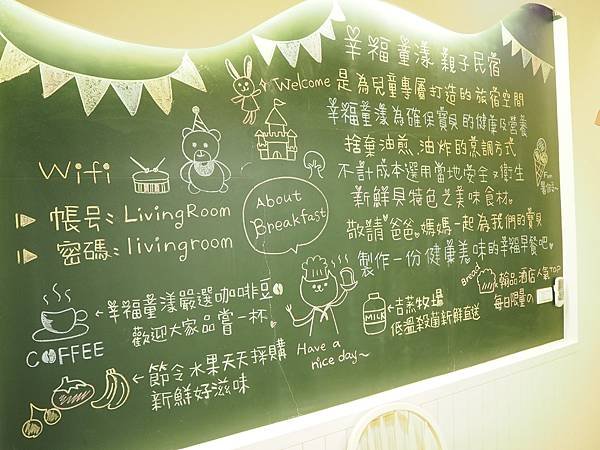 幸福童漾親子民宿
Welcome 是為兒童專屬打造的旅宿空間
幸福童漾為確保寶貝的健康及營養
捨棄油煎、油炸的烹調方式
不計成本選用當地安全又衛生
新鮮具特色之美味食材。
敬請爸爸媽媽一起為我們的寶貝
製作一份健康美味的幸福早餐吧
Wifi
帳号: LivingRoom
密碼: livingroom
About
Breakfast
COFFEE
幸福童漾嚴選咖啡豆
歡迎大家品嘗一杯
節令水果天天採購
新鮮好滋味
Have a
nice day~
MILK
吉蒸牧場
低溫殺菌新鮮直送
Bread
翰品酒店人氣TOP
每日限量の